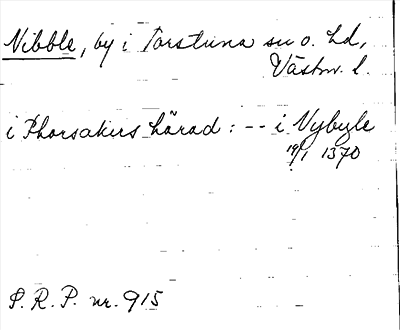 Nibble, by i Torstuna sn o. hd,
Västm. l.
i Thorsakirs härad : -- i Nybyle
19/1 1370
S. R. P. nr. 915